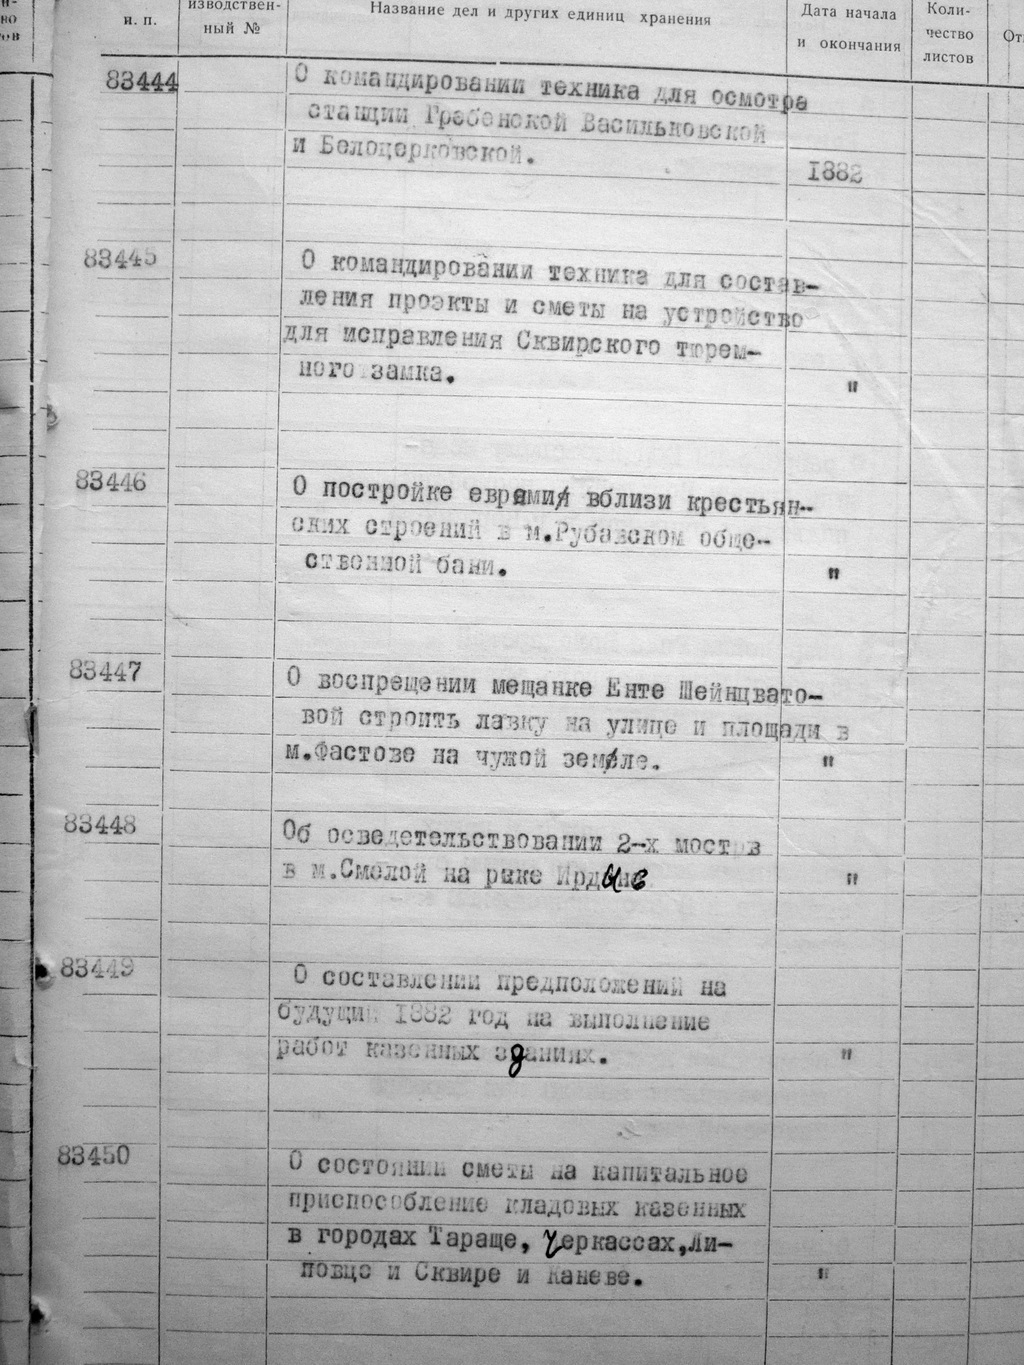 н. п.
изводствен-
ный №
Название дел и других единиц хранения
Дата начала
и окончания
Коли-
чество
листов
83444
О командировании техника для осмотра
станции Гребенской Васильковской
и Белоцерковской.
1882
83445
О командировании техника для состав-
ления проэкты и сметы на устройство
для исправления Сквирского тюрем-
ного замка.
"
83446
О постройке евреями вблизи крестьян-
ских строений в м.Рубавском обще-
ственной бани.
"
83447
О воспрещении мещанке Енте Шейнцвато-
вой строить лавку на улице и площади в
м.Фастове на чужой земле.
"
83448
Об осведетельствовании 2-х мостов
в м.Смелой на реке Ирдыне
"
83449
О составлении предположений на
будущий 1882 год на выполнение
работ казенных зданиях.
"
83450
О состоянии сметы на капитальное
приспособление кладовых казенных
в городах Тараще, Черкассах,Ли-
повце и Сквире и Каневе.
"